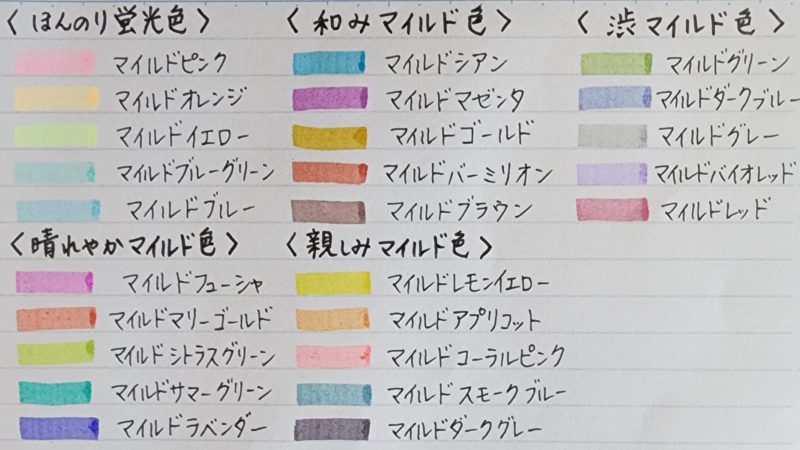 〈ほんのり蛍光色〉
マイルドピンク
マイルドオレンジ
マイルドイエロー
マイルドブルーグリーン
マイルドブルー
〈和みマイルド色〉
マイルドシアン
マイルドマゼンタ
マイルドゴールド
マイルドバーミリオン
マイルドブラウン
〈渋マイルド色〉
マイルドグリーン
マイルドダークブルー
マイルドグレー
マイルドバイオレッド
マイルドレッド
〈晴れやかマイルド色〉
マイルドフューシャ
マイルドマリーゴールド
マイルドシトラスグリーン
マイルドサマーグリーン
マイルドラベンダー
〈親しみマイルド色〉
マイルドレモンイエロー
マイルドアプリコット
マイルドコーラルピンク
マイルドスモークブルー
マイルドダークグレー